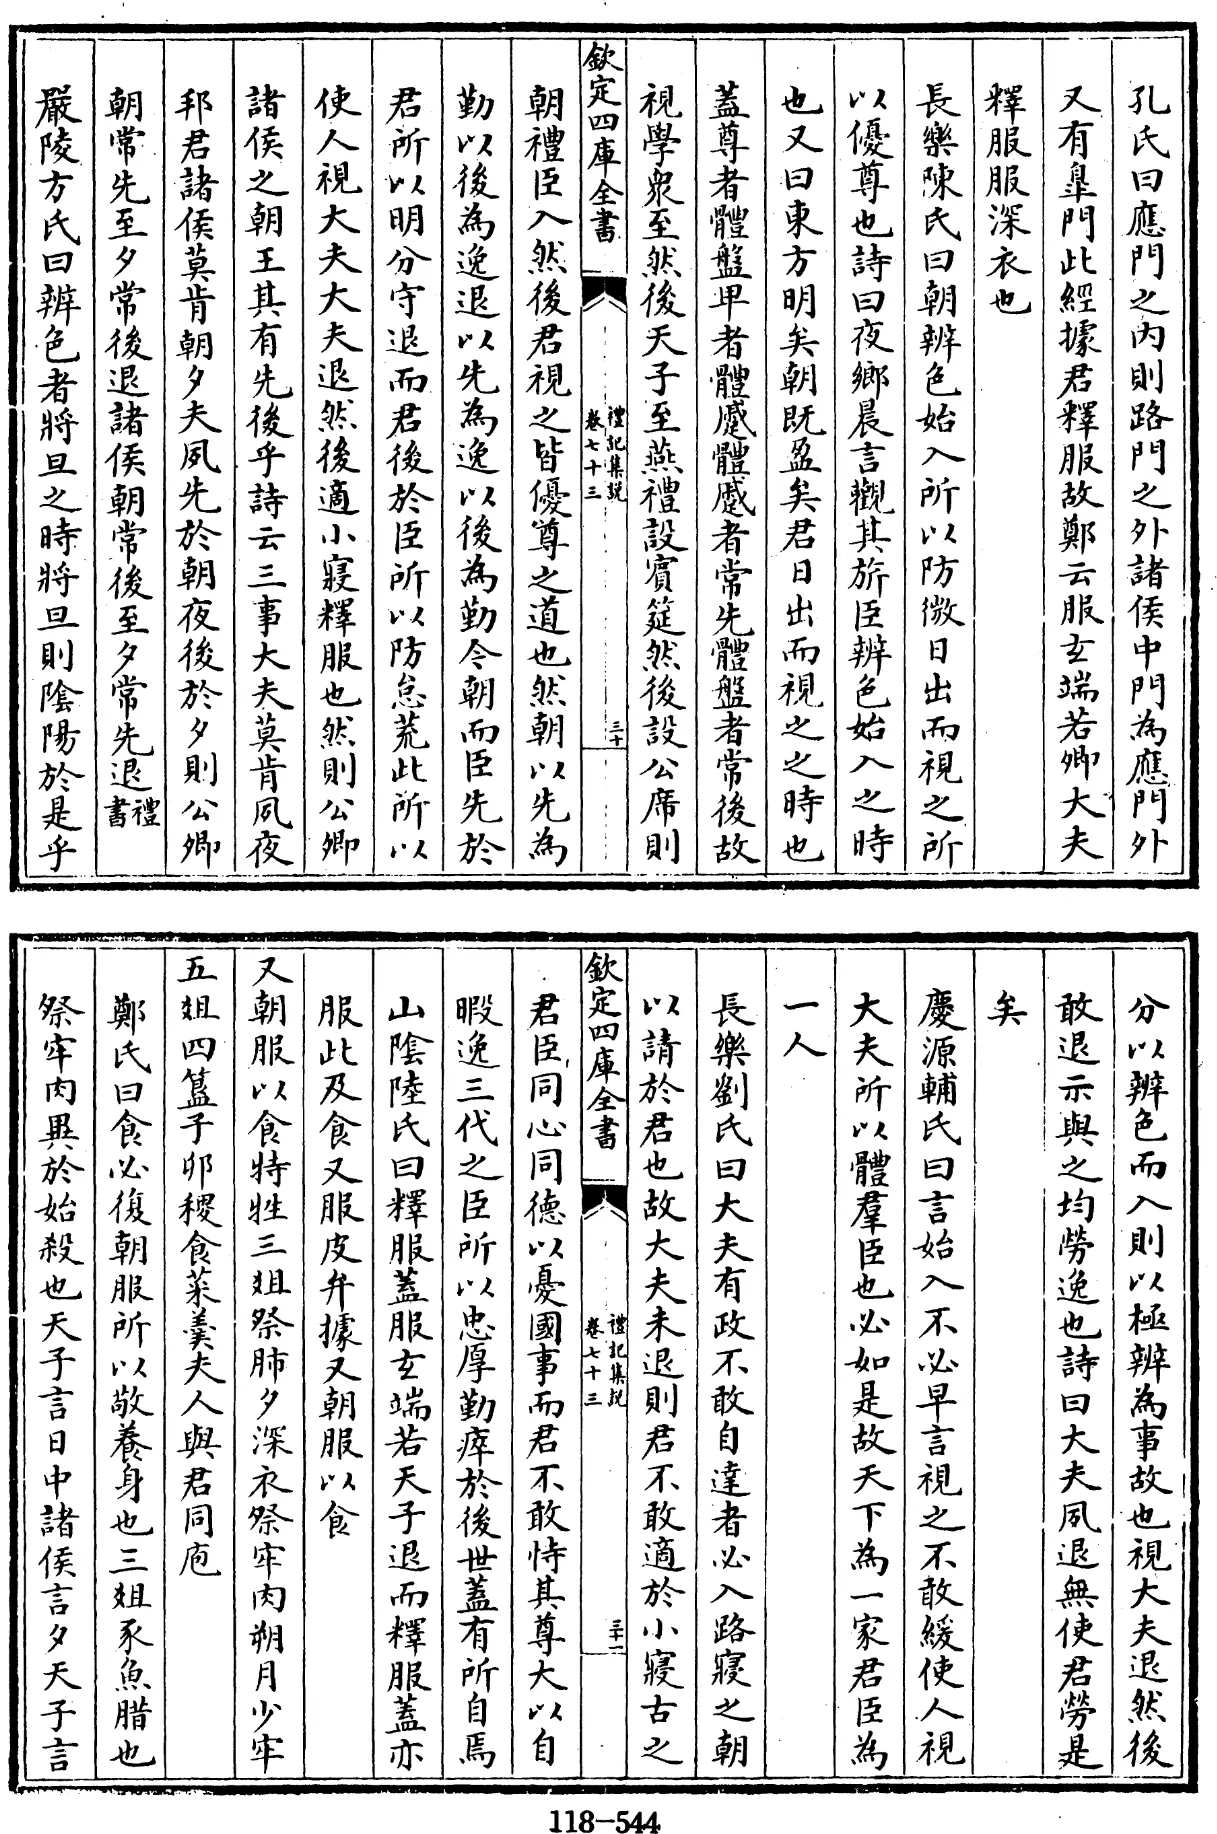 孔氏曰應門之内則路門之外諸侯中門為應門外
又有臯門此經據君釋服故鄭云服玄端若卿大夫
釋服服深衣也
長樂陳氏曰朝辨色始入所以防微日出而視之所
以優尊也詩曰夜鄉晨言觀其旂臣辨色始入之時
也又曰東方明矣朝既盈矣君日出而視之之時也
蓋尊者體盤卑者體蹙體蹙者常先體盤者常後故
視學衆至然後天子至燕禮設賔筵然後設公席則
欽定四庫全書
禮記集説
卷七十三
三十
朝禮臣入然後君視之皆優尊之道也然朝以先為
勤以後為逸退以先為逸以後為勤今朝而臣先於
君所以明分守退而君後於臣所以防怠荒此所以
使人視大夫大夫退然後適小寢釋服也然則公卿
諸侯之朝王其有先後乎詩云三事大夫莫肯夙夜
邦君諸侯莫肯朝夕夫夙先於朝夜後於夕則公卿
朝常先至夕常後退諸侯朝常後至夕常先退禮書
嚴陵方氏曰辨色者將旦之時將旦則陰陽於是乎
分以辨色而入則以極辨為事故也視大夫退然後
敢退示與之均勞逸也詩曰大夫夙退無使君勞是
矣
慶源輔氏曰言始入不必早言視之不敢緩使人視
大夫所以體羣臣也必如是故天下為一家君臣為
一人
長樂劉氏曰大夫有政不敢自達者必入路寢之朝
以請於君也故大夫未退則君不敢適於小寢古之
欽定四庫全書
禮記集説
卷七十三
三十一
君臣同心同德以憂國事而君不敢恃其尊大以自
暇逸三代之臣所以忠厚勤瘁於後世蓋有所自焉
山陰陸氏曰釋服蓋服玄端若天子退而釋服蓋亦
服此及食又服皮弁據又朝服以食
又朝服以食特牲三俎祭肺夕深衣祭牢肉朔月少牢
五俎四簋子卯稷食菜羹夫人與君同庖
鄭氏曰食必復朝服所以敬養身也三俎豕魚腊也
祭牢肉異於始殺也天子言日中諸侯言夕天子言
118-544